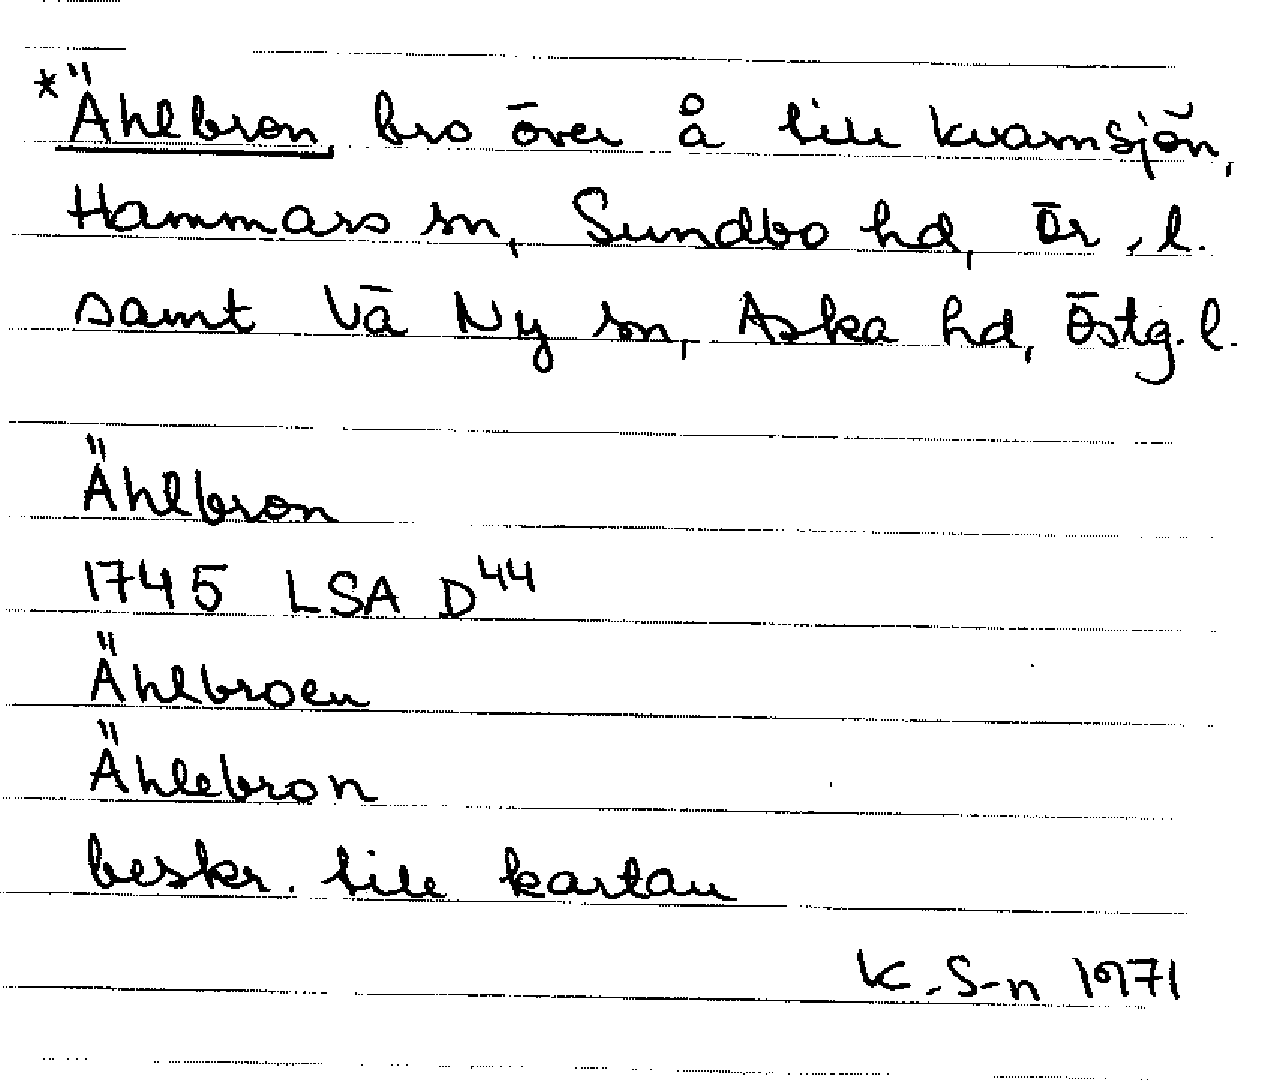 *Ählbron, bro över å till kvarnsjön,
Hammars sn, Sundbo hd, Ör, l.
samt Vä Ny sn, Aska hd, Östg. l.
Ählbron
1745 LSA D44
Ählbroen
Ählebron
beskr. till kartan
K. S-n 1971